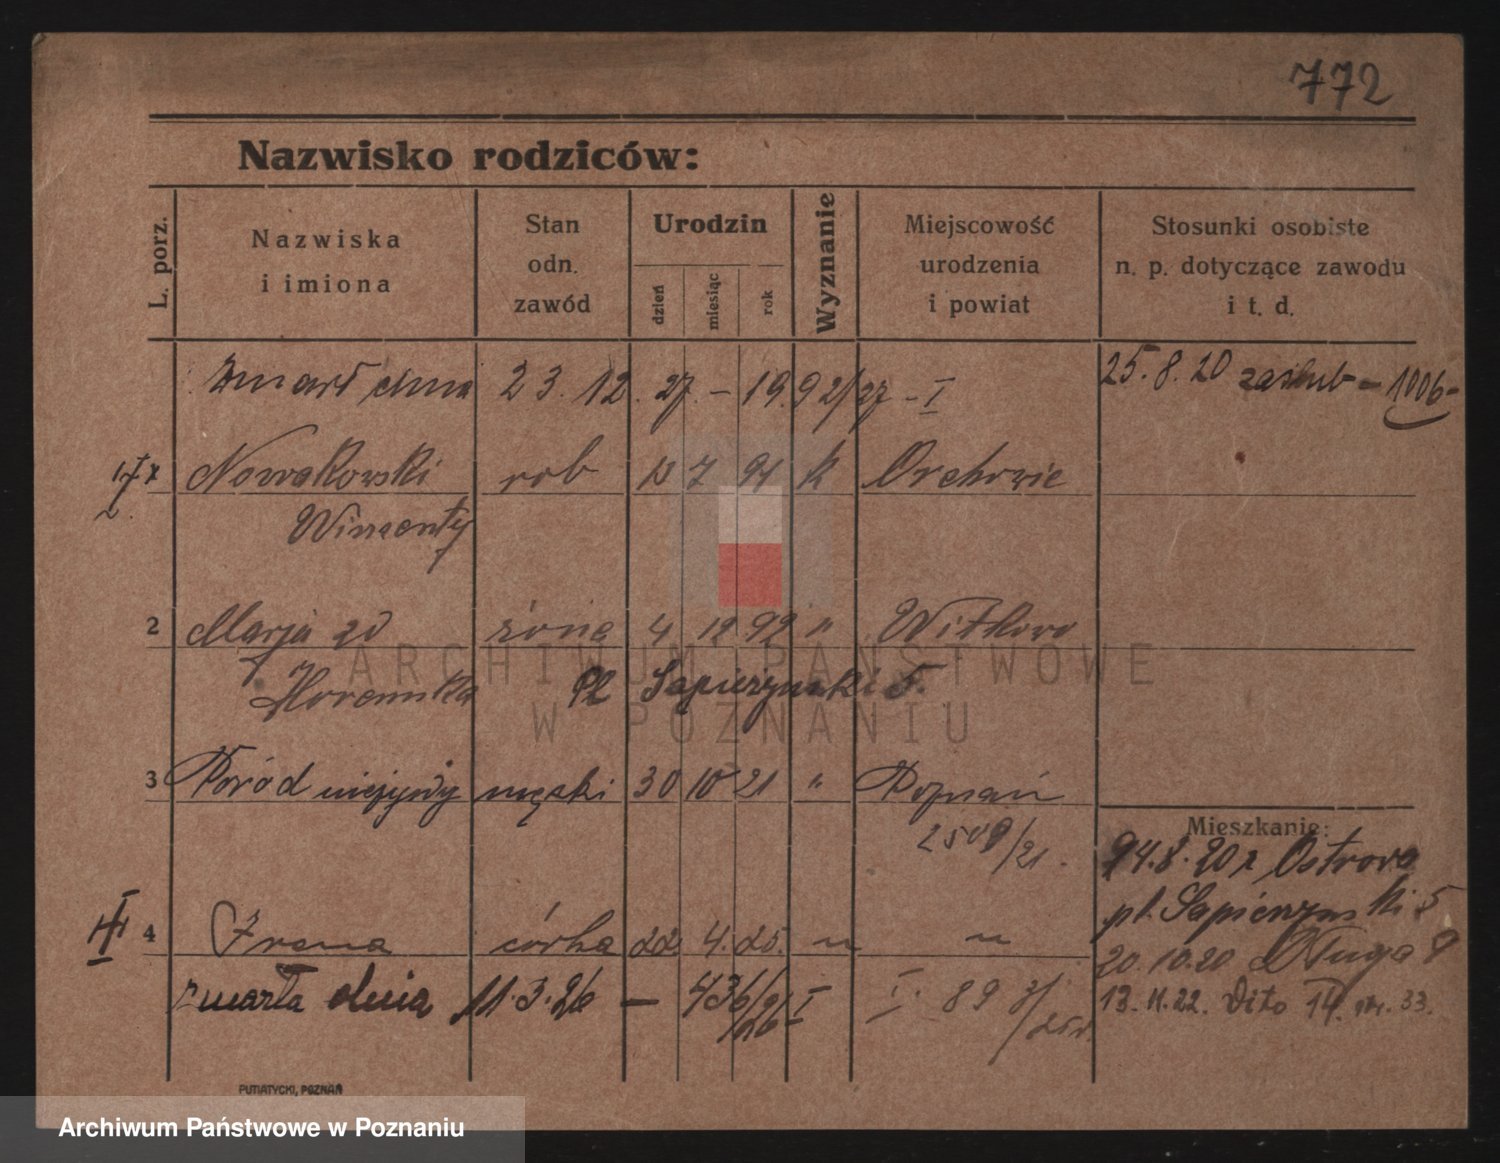 772
Nazwisko rodziców:
L. porz.
Nazwiska
i imiona
Stan
odn.
zawód
Urodzin
dzień
miesiąc
rok
Wyznanie
Miejscowość
urodzenia
i powiat
Stosunki osobiste
n. p. dotyczące zawodu
i t. d.
zmarł dnia 23.12.27. – 1992/27 – I
25.8.20 zaślub – 1006 –
Nowakowski rob 7 91 k Orchowie
Wincenty
2 Marja zd żona 4 12 92 " Witkowo
Horemska Pl Sapieżynski 5.
3 Poród nieżywy męski 30 10 21 " Poznań
2509/21.
Mieszkanie:
24.8.20 z Ostrowa
pl. Sapieżynski 5
4 Irena córka 22. 4. 25. " "
20.10.20 Długa 9
zmarła dnia 11.3.26 – 436/26 I I. 89 /25r.
13.11.22. Dito 14. nr. 33.
PUTIATYCKI, POZNAŃ
ARCHIWUM PAŃSTWOWE
W POZNANIU
Archiwum Państwowe w Poznaniu